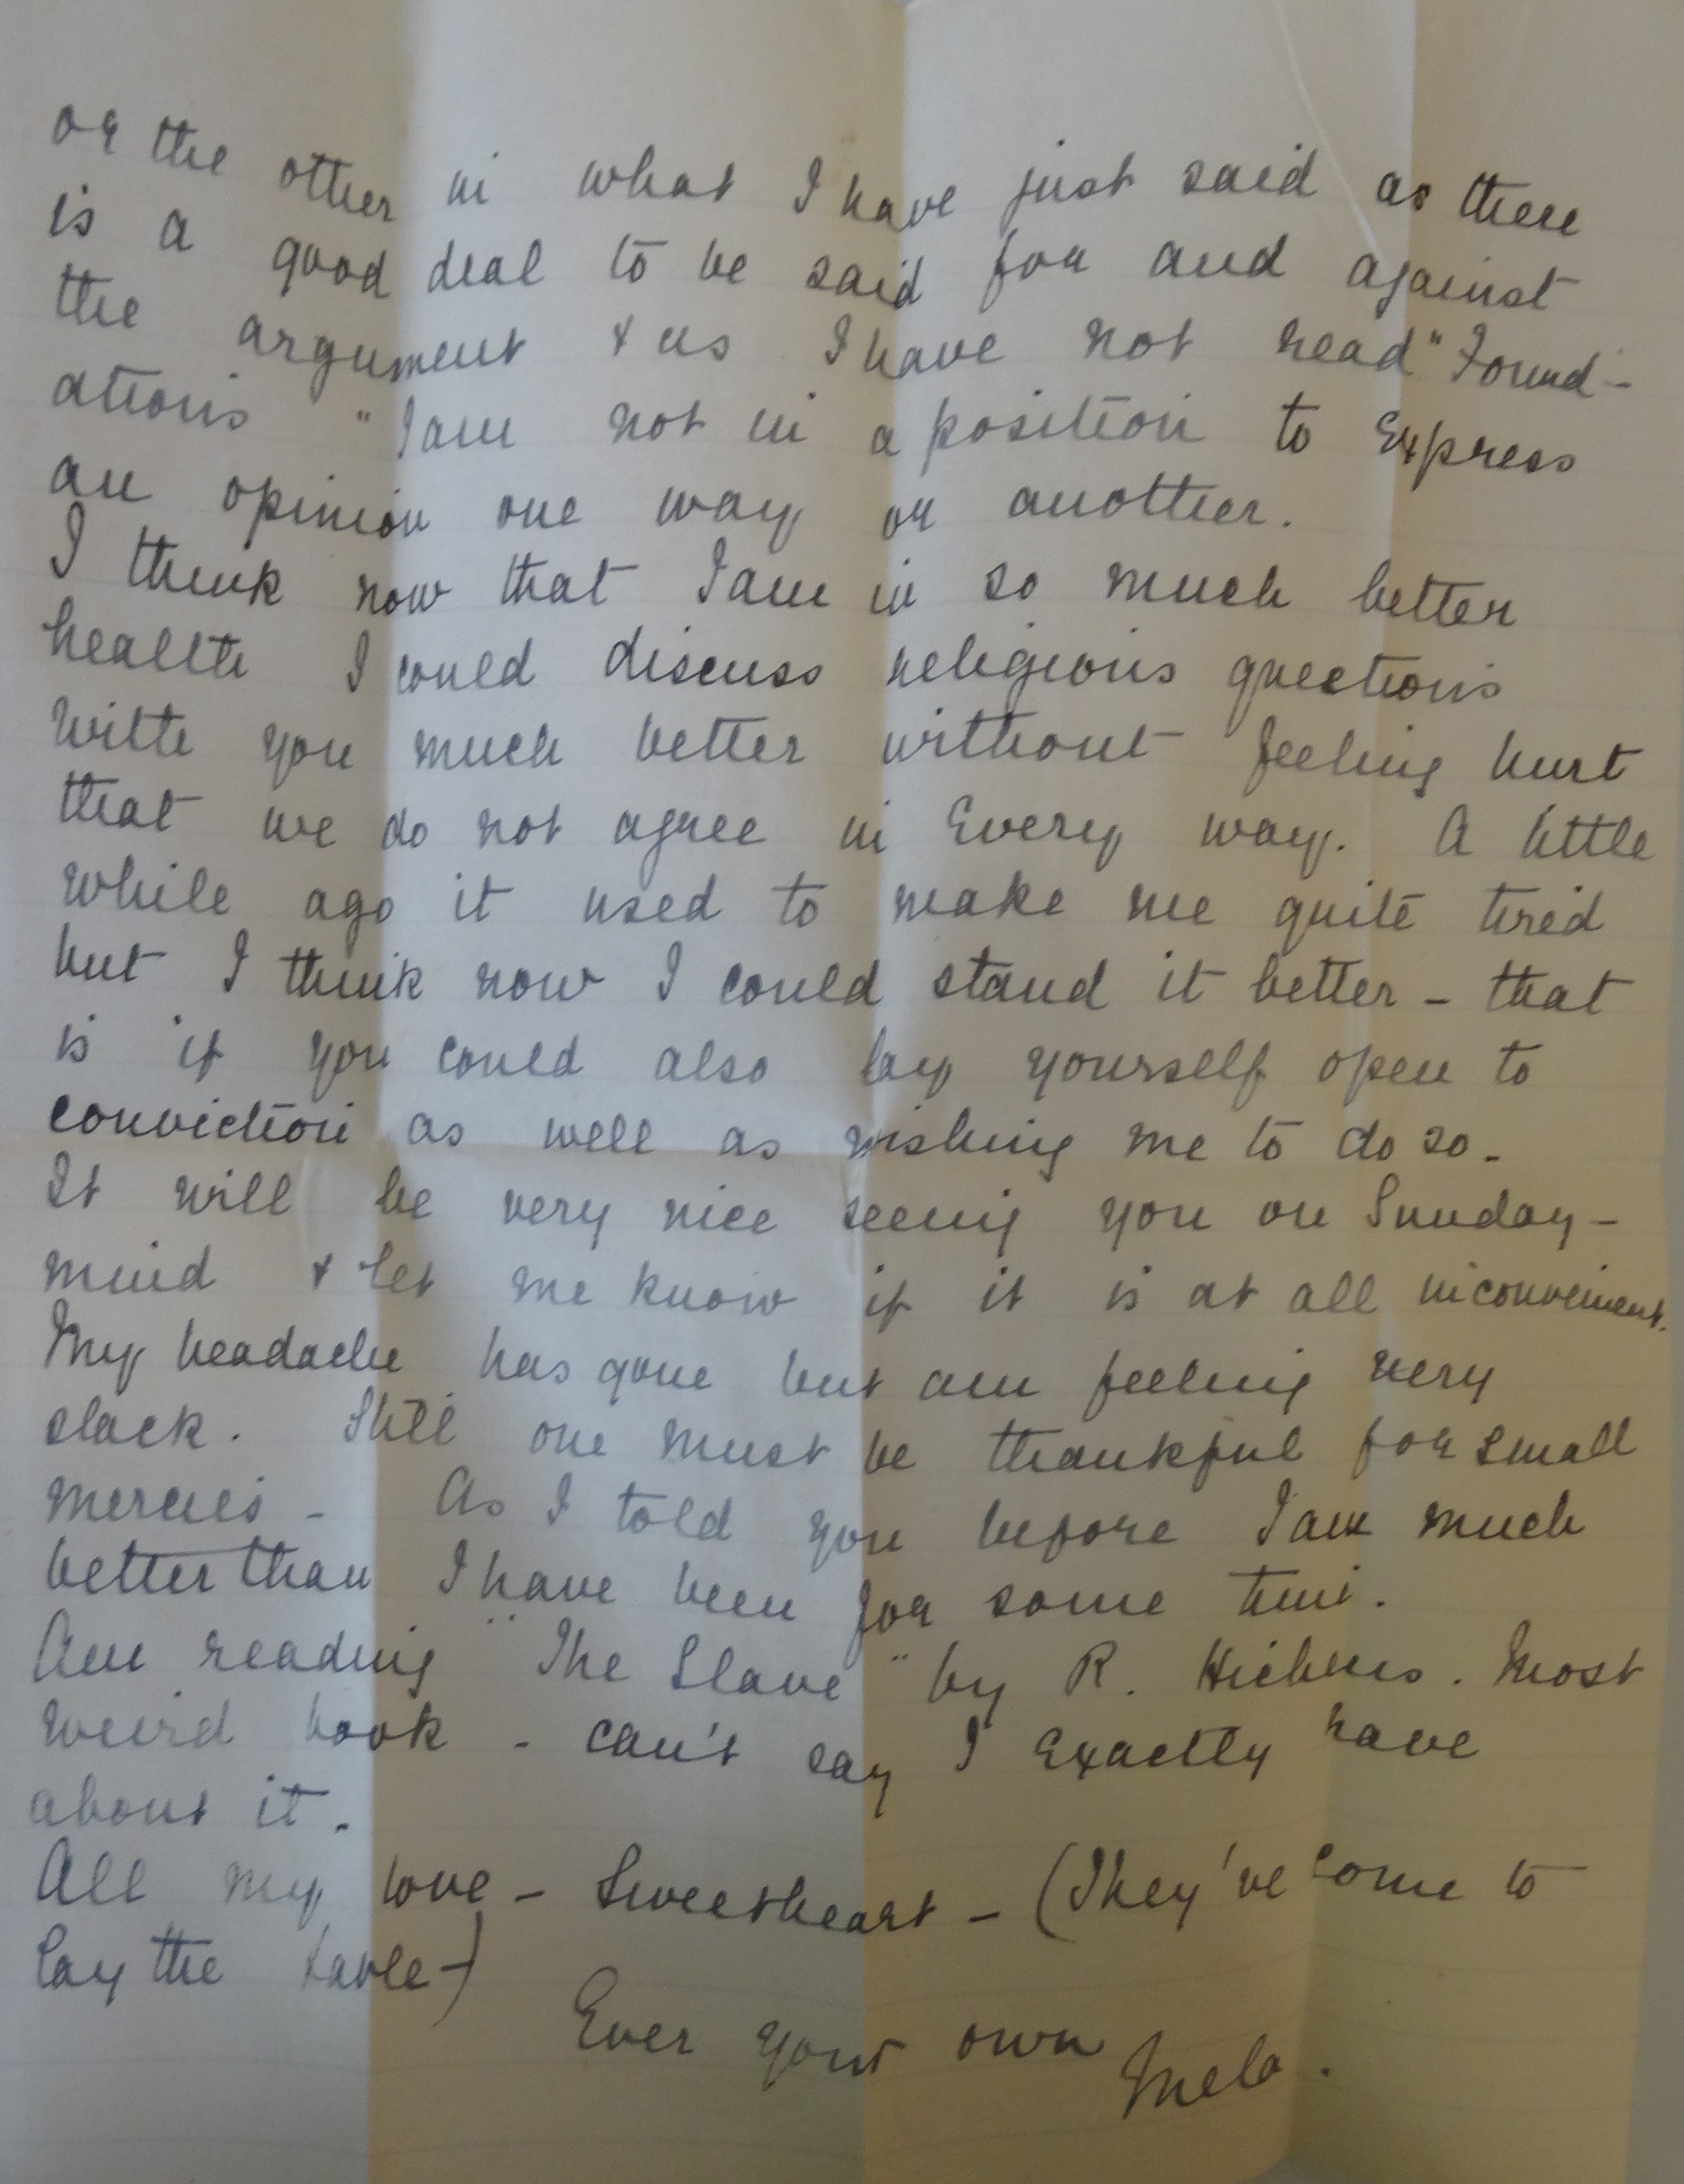 or the other in what I have just said as there
is a good deal to be said for and against
the argument & as I have not read "Found-
ations" I am not in a position to Express
an opinion one way or another.
I think now that I am in so much better
health I could discuss religious questions
with you much better without feeling hurt
that we do not agree in Every way. A little
while ago it used to make me quite tired
but I think now I could stand it better - that
is if you could also lay yourself open to
conviction as well as wishing me to do so.
It will be very nice seeing you on Sunday -
mind & let me know if it is at all inconvenient.
My headache has gone but am feeling very
slack. Still one must be thankful for small
mercies - As I told you before I am much
better than I have been for some time.
Am reading "The Slave" by R. Hichens. Most
weird book - can't say I Exactly rave
about it.
All my love - Sweetheart - (They've come to
lay the table -)
Ever your own
Mela.